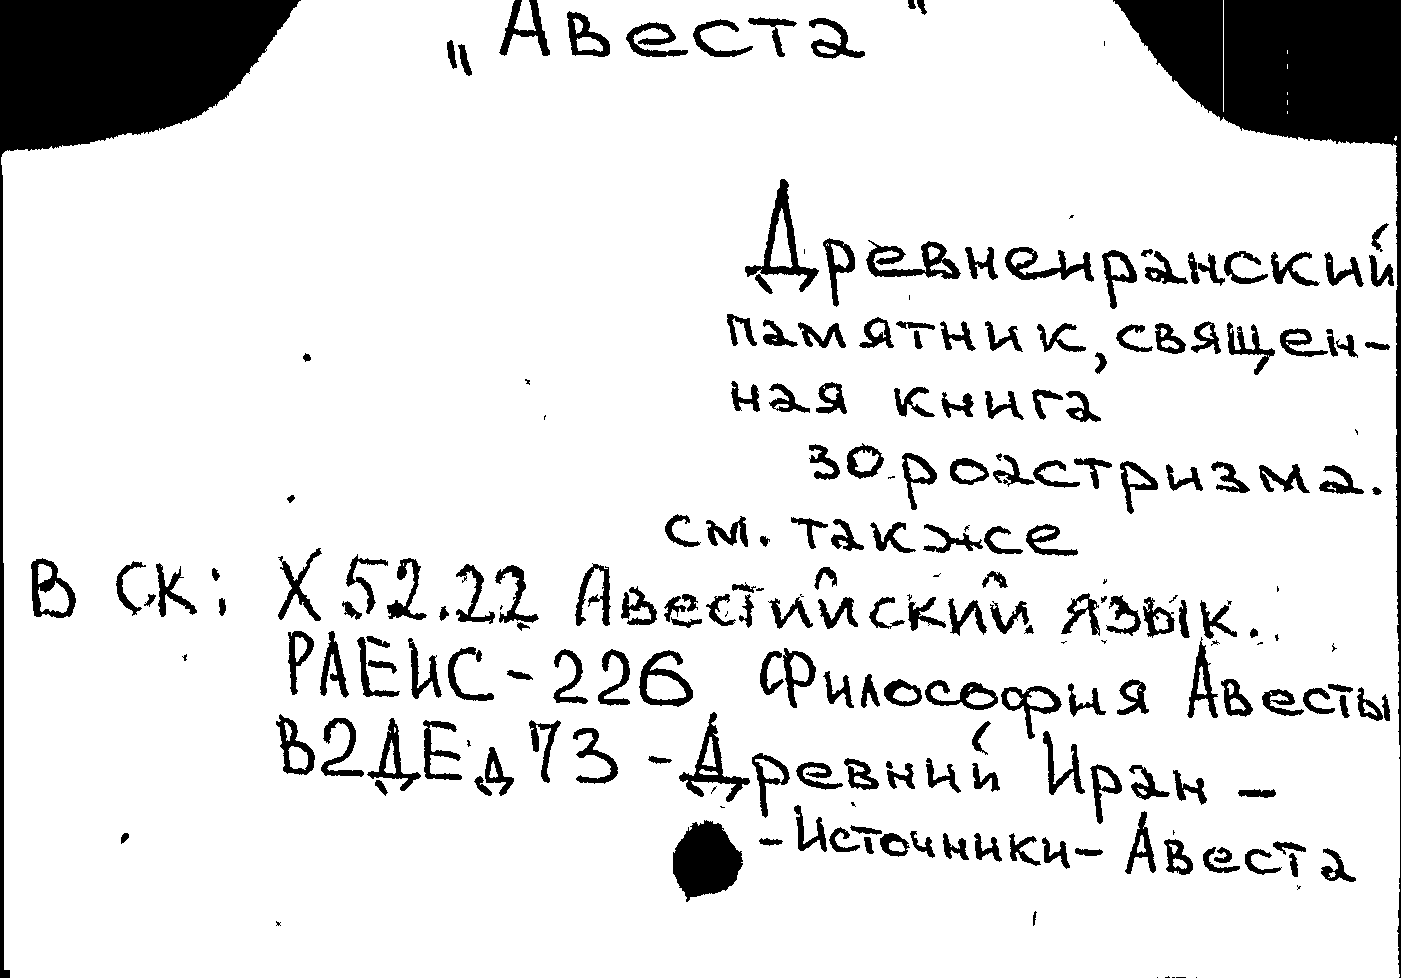 „Авеста"
Древнеиранский
памятник, священ-
ная книга
зороастризма.
см. также
В СК: Х 52.22 Авестийский язык.
РАЕИС-226 Философия Авесты
В2ДЕд73 - Древний Иран -
- Источники - Авеста